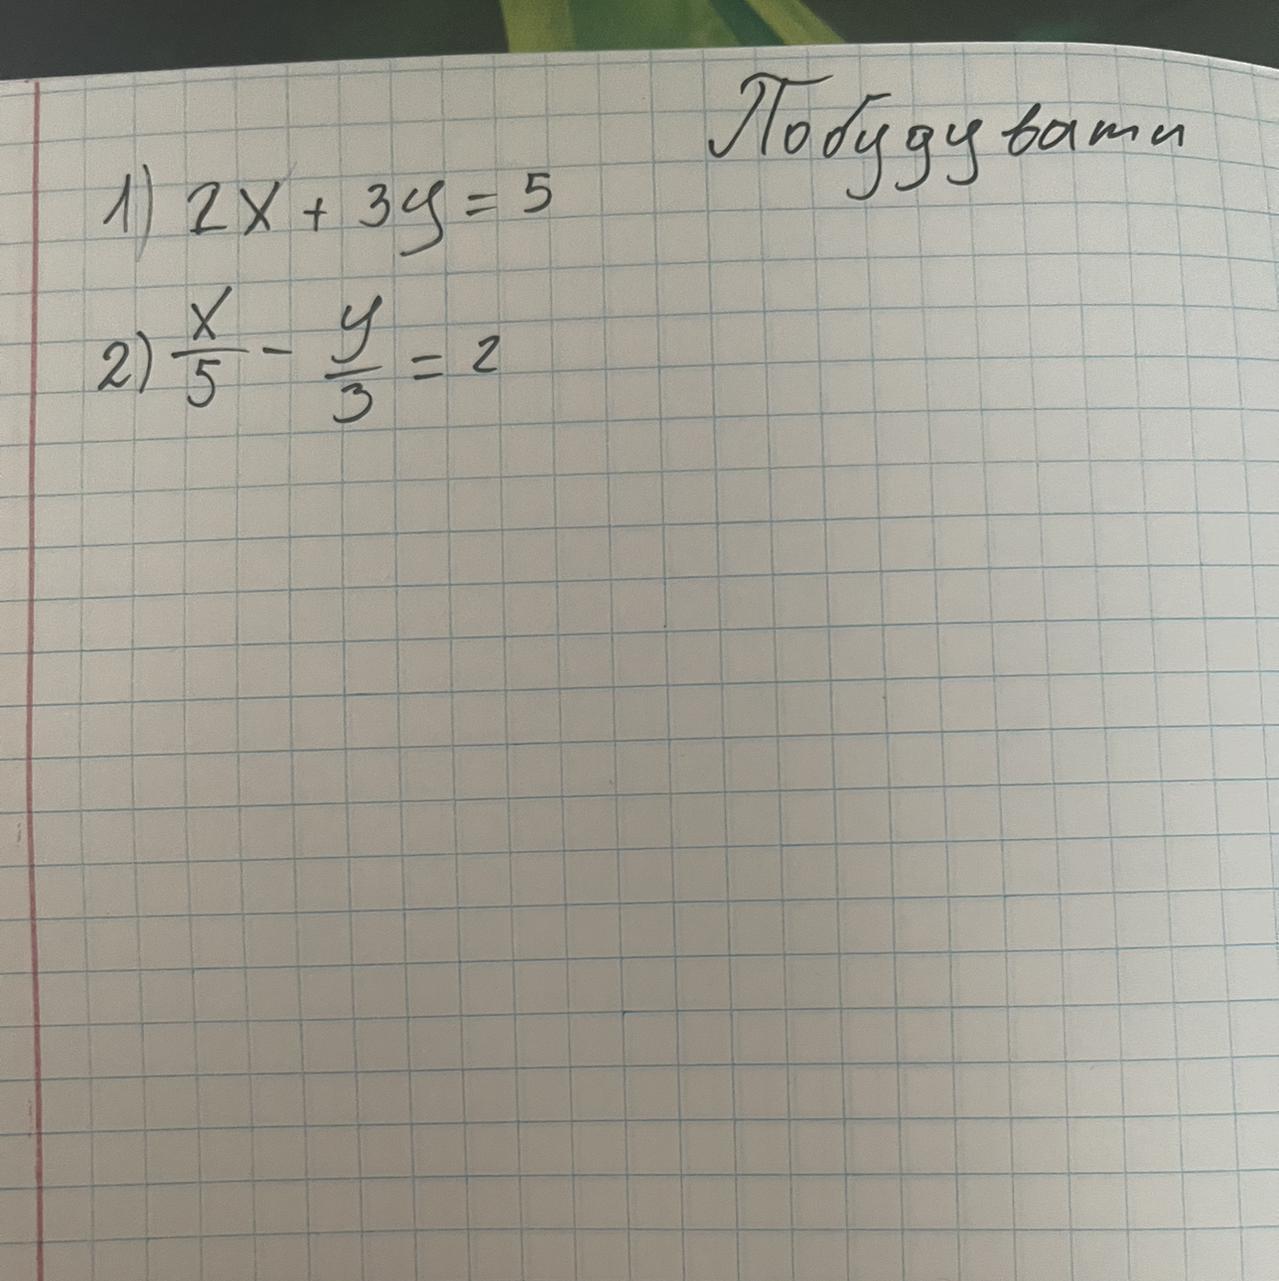 Побудувати
1) 2x + 3y = 5
2) x/5 - y/3 = 2